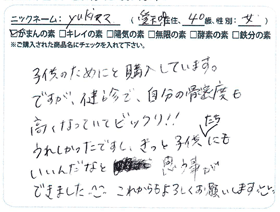 ニックネーム:yukiママ (愛知県在住、40歳、性別:女)
☑がまんの素 □キレイの素 □陽気の素 □無限の素 □酵素の素 □鉄分の素
※ご購入された商品名にチェックを入れて下さい。
子供のためにと購入しています。
ですが、健診で、自分の骨密度も
高くなっていてビックリ!!
うれしかったですし、きっと子供たちにも
いいんだなと思う事が
できました^^ これからもよろしくお願いします